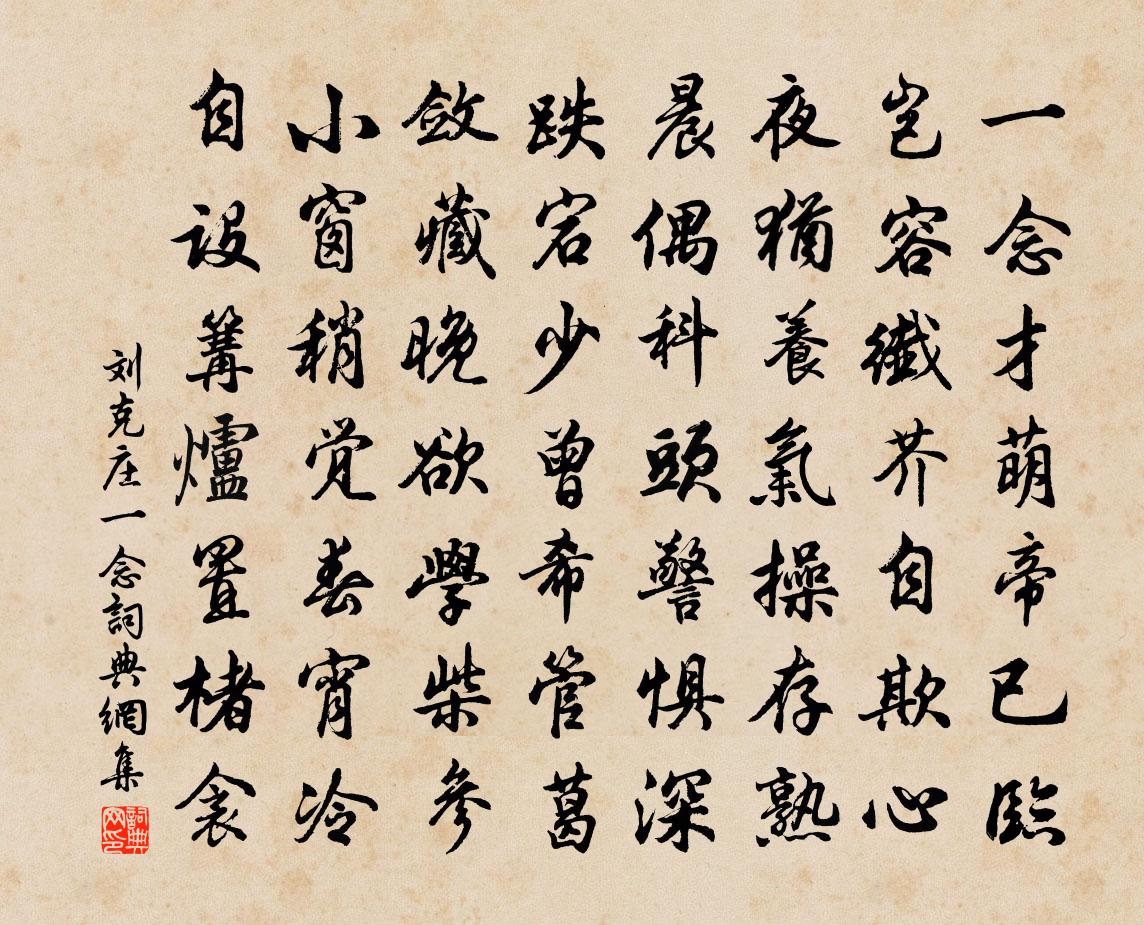 一念才萌帝已臨
豈容纖芥自欺心
夜猶養氣操存熟
晨偶科頭警惧深
跌宕少曾希管葛
斂藏晚欲學柴參
小窗稍觉春宵冷
自設篝爐置楮衾
刘克庄一念詞典網集
詞典网印